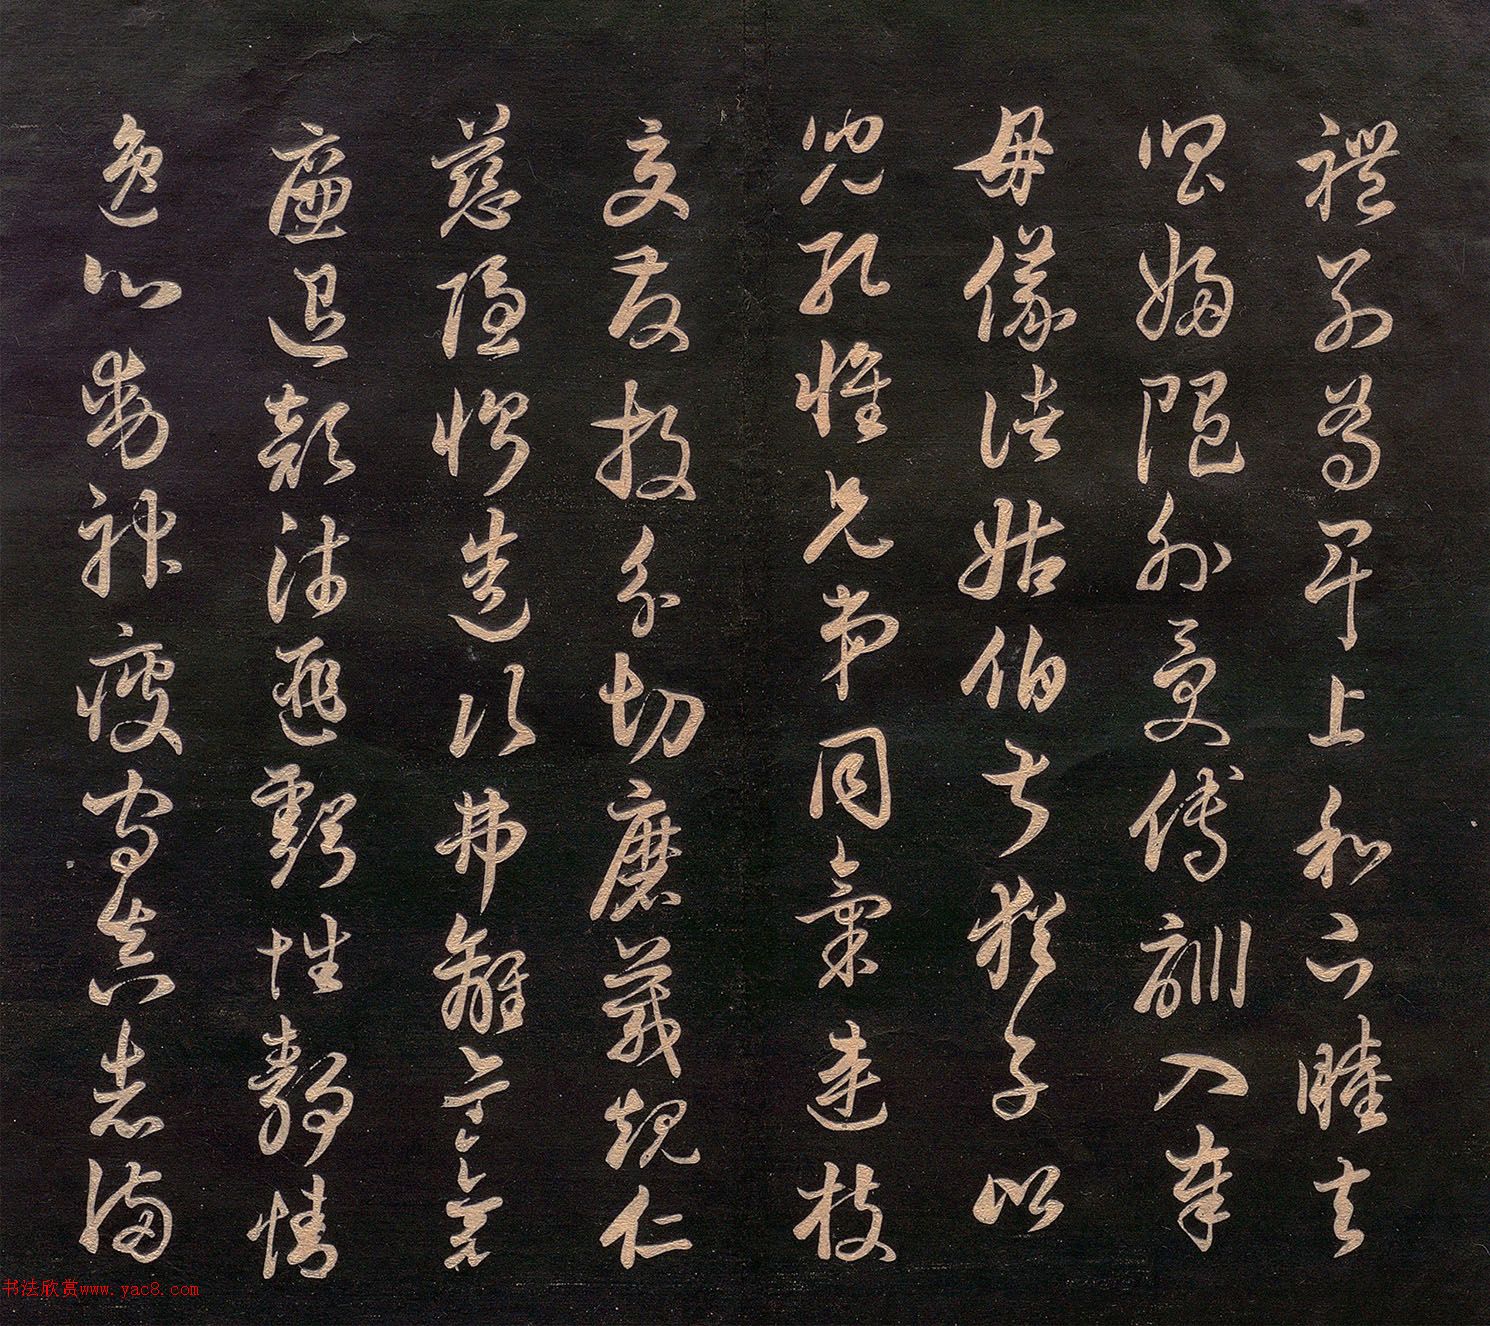 禮別尊卑上和下睦夫
唱婦隨外受傅訓入奉
母儀諸姑伯叔猶子比
兒孔懷兄弟同氣連枝
交友投分切磨箴規仁
慈隱惻造次弗離節義
廉退顛沛匪虧性靜情
逸心動神疲守真志滿
书法欣赏www.yac8.com